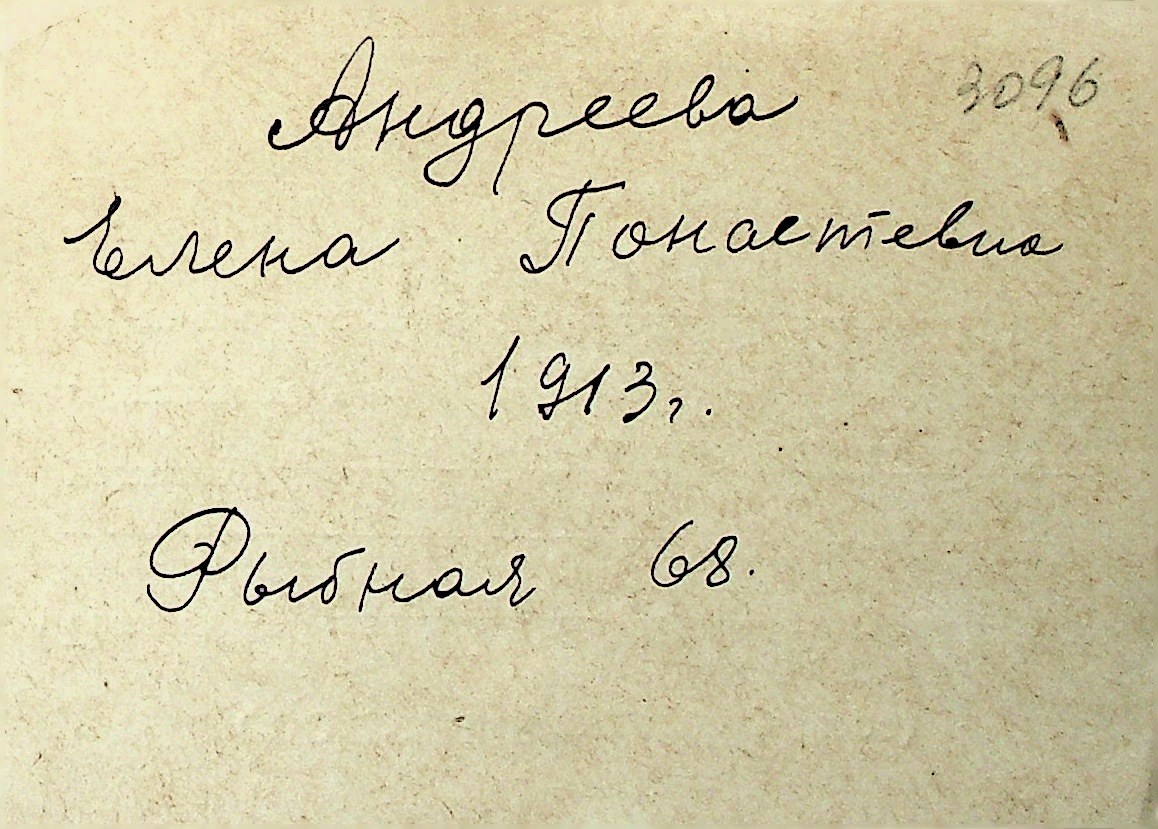 3096
Андреева
Елена Понаетевна
1913г.
Рыбная 68.